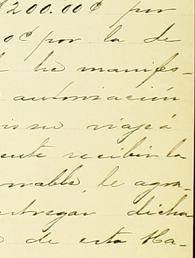 $200.00 por
0 por la de
he manifes
autorización
mismo viaje á
ente recibir la
rable, le agra-
ntregar dicha
o de esta Ha-